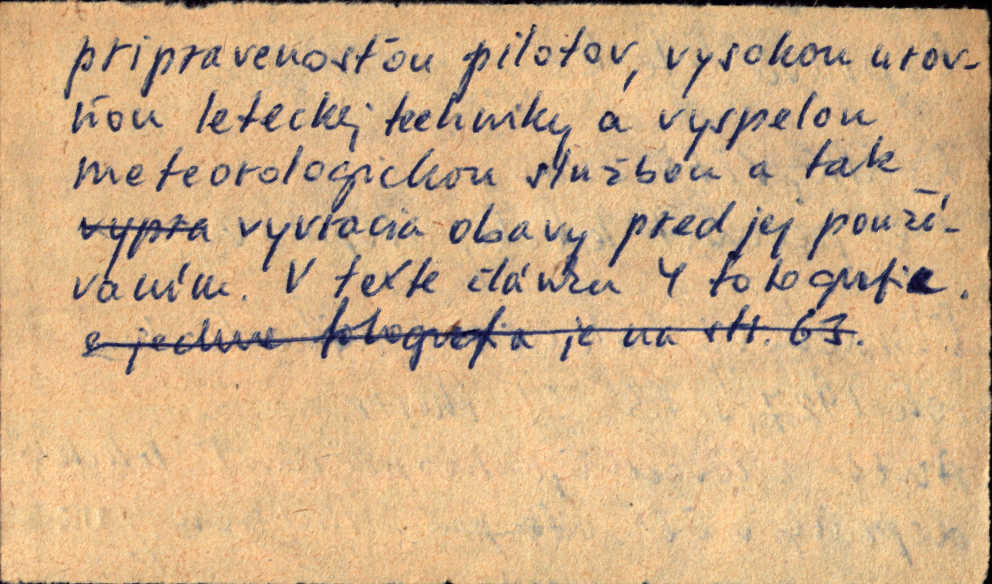 pripravenosťou pilotov, vysokou úrov-
ňou leteckej techniky a vyspelou
meteorologickou službou a tak
vypra vyvracia obavy pred jej použí-
vaním. V texte článku 4 fotografie.
a jedna fotografia je na str. 63.